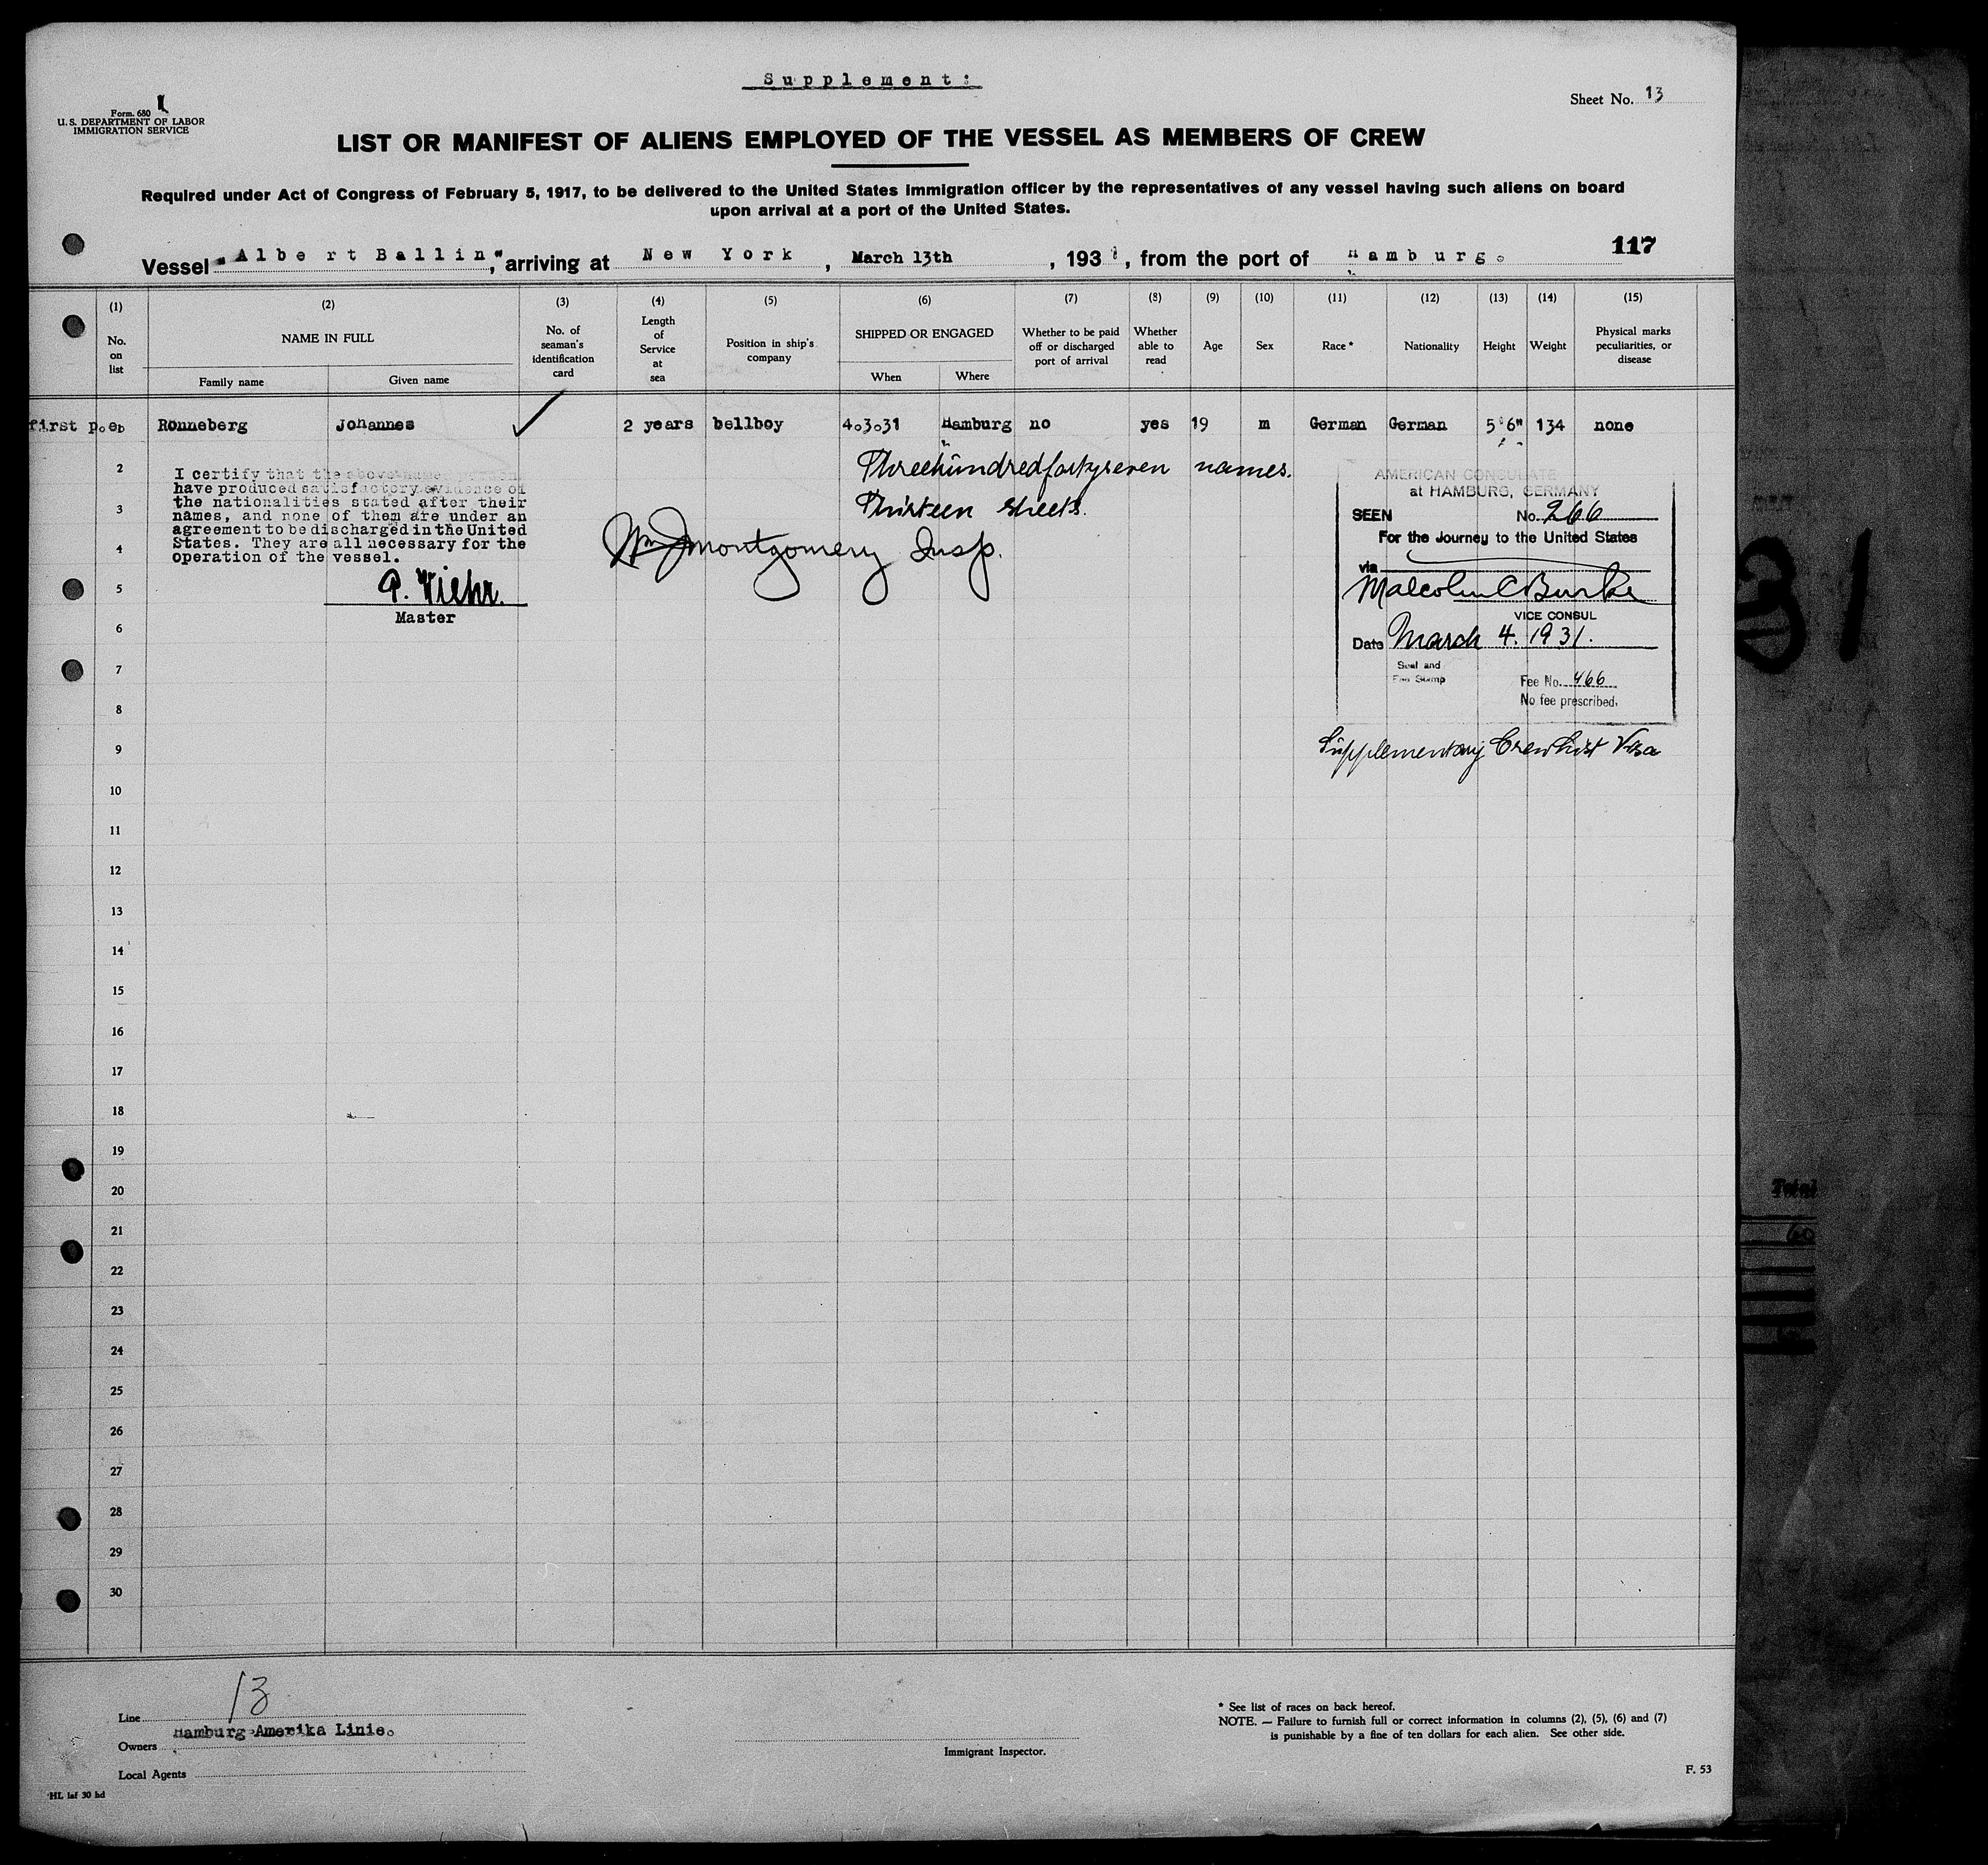 Supplement:
Form 680
U. S. DEPARTMENT OF LABOR
IMMIGRATION SERVICE
Sheet No. 13
LIST OR MANIFEST OF ALIENS EMPLOYED OF THE VESSEL AS MEMBERS OF CREW
Required under Act of Congress of February 5, 1917, to be delivered to the United States immigration officer by the representatives of any vessel having such aliens on board
upon arrival at a port of the United States.
117
Vessel "Albert Ballin", arriving at New York, March 13th, 193, from the port of Hamburg.
(1) (2) (3) (4) (5) (6) (7) (8) (9) (10) (11) (12) (13) (14) (15)
No. on list
NAME IN FULL
Family name Given name
No. of seaman's identification card
Length of Service at sea
Position in ship's company
SHIPPED OR ENGAGED
When Where
Whether to be paid off or discharged port of arrival
Whether able to read
Age
Sex
Race *
Nationality
Height
Weight
Physical marks peculiarities, or disease
first p. Ronneberg Johannes 2 years bellboy 4.3.31 Hamburg no yes 19 m German German 5'6" 134 none
2
3
4
5
6
7
8
9
10
11
12
13
14
15
16
17
18
19
20
21
22
23
24
25
26
27
28
29
30
I certify that the above named person
have produced satisfactory evidence of
the nationalities stated after their
names, and none of them are under an
agreement to be discharged in the United
States. They are all necessary for the
operation of the vessel.
P. Wiehr.
Master
Threehundredfortyseven names.
Thirteen sheets.
Wm J Montgomery Insp.
AMERICAN CONSULATE
at HAMBURG, GERMANY
SEEN No. 266
For the Journey to the United States
via
Malcolm C Burke
VICE CONSUL
Date March 4. 1931.
Seal and
Fee Stamp
Fee No. 466
No fee prescribed.
Supplementary Crew List Visa
31
Total
60
13
Line
Hamburg-Amerika Linie.
Owners
Local Agents
Immigrant Inspector.
* See list of races on back hereof.
NOTE. — Failure to furnish full or correct information in columns (2), (5), (6) and (7)
is punishable by a fine of ten dollars for each alien. See other side.
F. 53
HL laf 30 hd